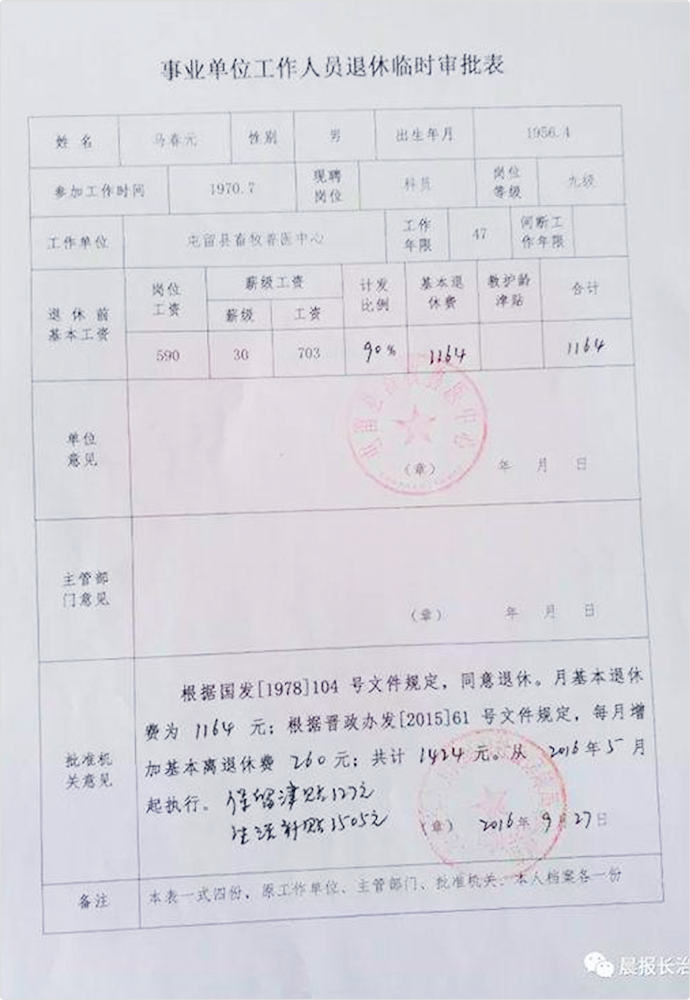 事业单位工作人员退休临时审批表
姓名 马春元 性别 男 出生年月 1956.4
参加工作时间 1970.7 现聘岗位 科员 岗位等级 九级
工作单位 屯留县畜牧兽医中心 工作年限 47 间断工作年限
退休前基本工资 岗位工资 薪级工资 计发比例 基本退休费 教护龄津贴 合计
薪级 工资
590 30 703 90% 1164 1164
单位意见
屯留县畜牧兽医中心
（章） 年 月 日
主管部门意见
（章） 年 月 日
批准机关意见
根据国发[1978]104 号文件规定，同意退休。月基本退休
费为 1164 元；根据晋政办发[2015]61 号文件规定，每月增
加基本离退休费 260 元；共计 1424 元。从 2016年5月
起执行。 保留津贴127元
生活补贴1505元 （章） 2016年 9月27日
备注 本表一式四份，原工作单位、主管部门、批准机关、本人档案各一份
晨报长治